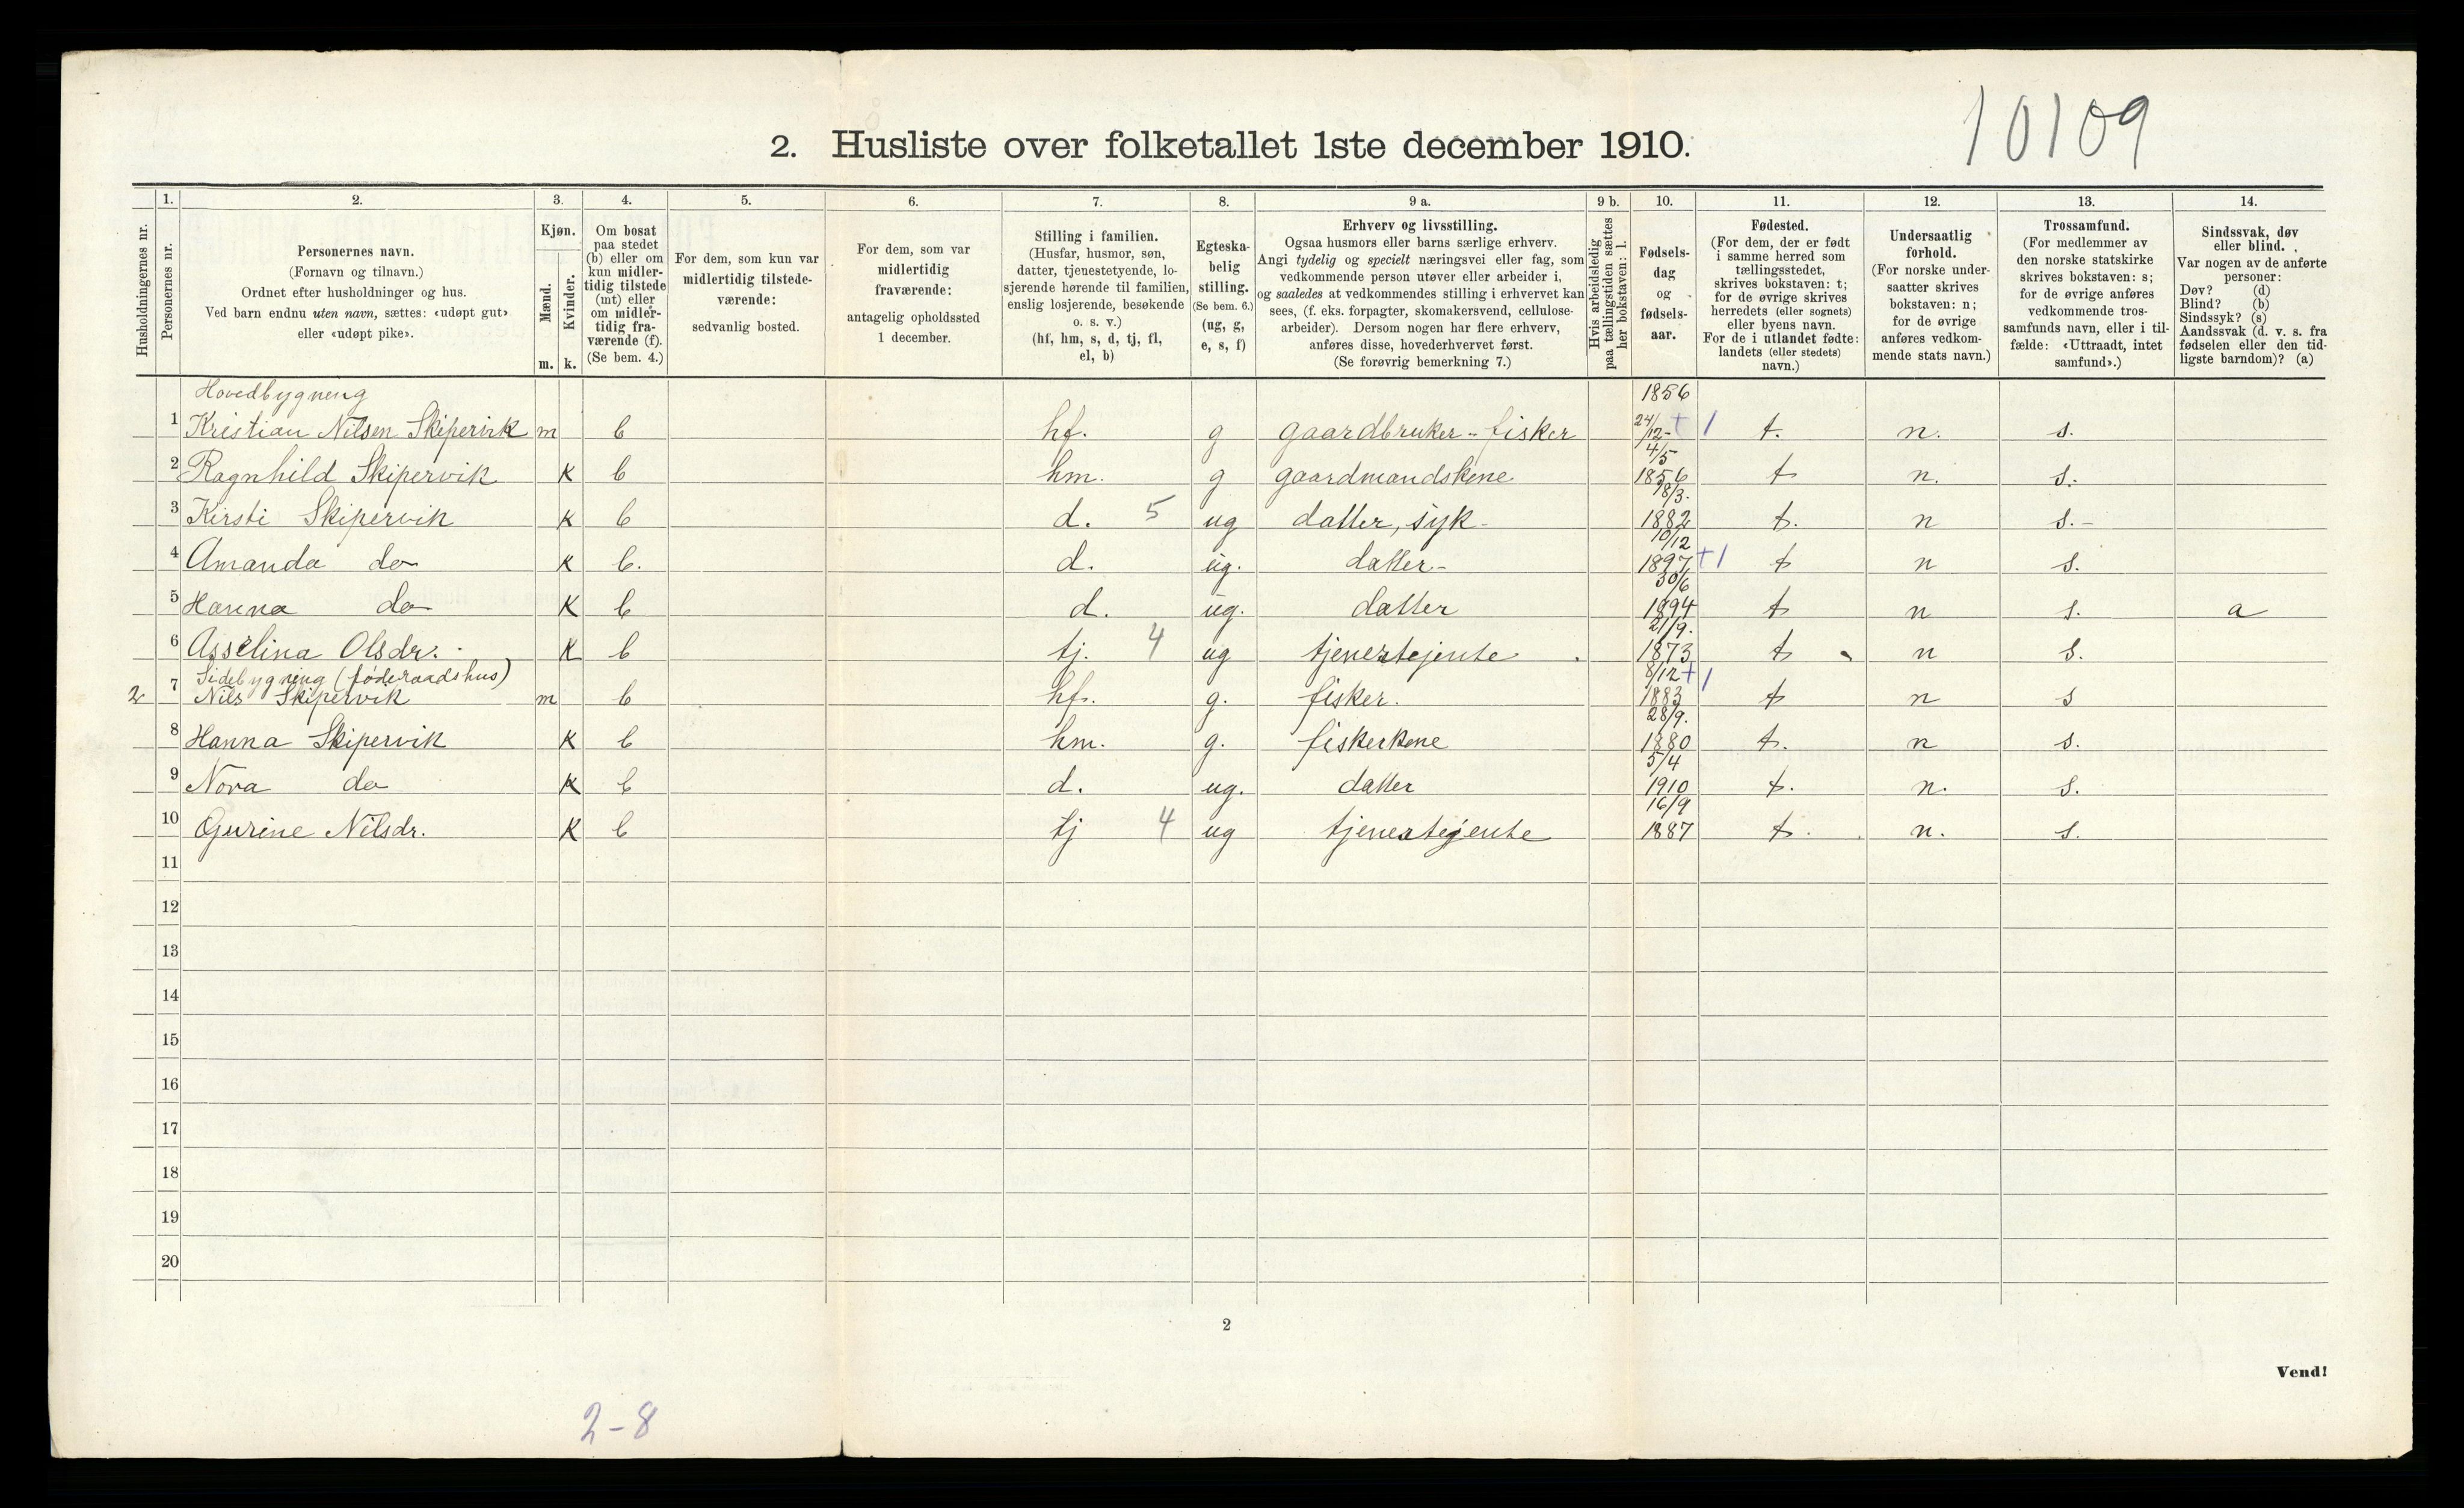 10109
2. Husliste over folketallet 1ste december 1910.
Husholdningernes nr.
1. Personernes nr.
2. Personernes navn. (Fornavn og tilnavn.) Ordnet efter husholdninger og hus. Ved barn endnu uten navn, sættes: «udøpt gut» eller «udøpt pike».
3. Kjøn. Mænd. m. Kvinder. k.
4. Om bosat paa stedet (b) eller om kun midlertidig tilstede (mt) eller om midlertidig fraværende (f). (Se bem. 4.)
5. For dem, som kun var midlertidig tilstedeværende: sedvanlig bosted.
6. For dem, som var midlertidig fraværende: antagelig opholdssted 1 december.
7. Stilling i familien. (Husfar, husmor, søn, datter, tjenestetyende, losjerende hørende til familien, enslig losjerende, besøkende o. s. v.) (hf, hm, s, d, tj, fl, el, b)
8. Egteskabelig stilling. (Se bem. 6.) (ug, g, e, s, f)
9 a. Erhverv og livsstilling. Ogsaa husmors eller barns særlige erhverv. Angi tydelig og specielt næringsvei eller fag, som vedkommende person utøver eller arbeider i, og saaledes at vedkommendes stilling i erhvervet kan sees, (f. eks. forpagter, skomakersvend, cellulosearbeider). Dersom nogen har flere erhverv, anføres disse, hovederhvervet først. (Se forøvrig bemerkning 7.)
9 b. Hvis arbeidsledig paa tællingstiden sættes her bokstaven: l.
10. Fødselsdag og fødselsaar.
11. Fødested. (For dem, der er født i samme herred som tællingsstedet, skrives bokstaven: t; for de øvrige skrives herredets (eller sognets) eller byens navn. For de i utlandet fødte: landets (eller stedets) navn.)
12. Undersaatlig forhold. (For norske undersaatter skrives bokstaven: n; for de øvrige anføres vedkommende stats navn.)
13. Trossamfund. (For medlemmer av den norske statskirke skrives bokstaven: s; for de øvrige anføres vedkommende trossamfunds navn, eller i tilfælde: «Uttraadt, intet samfund».)
14. Sindssvak, døv eller blind. Var nogen av de anførte personer: Døv? (d) Blind? (b) Sindssyk? (s) Aandssvak (d. v. s. fra fødselen eller den tidligste barndom)? (a)
Hovedbygneng
1 Kristian Nilsen Skipervik m b hf. g gaardbruker - fisker 1856 24/12- +1 t. n. s.
2 Ragnhild Skipervik K b hm. g gaardmandskone 4/5 1856 t n. s.-
3 Kirsti Skipervik K b d. 5 ug datter, syk- 18/3. 1882 t. n s.-
4 Amanda do K b. d. ug. datter- 10/12 1897 +1 t n s.
5 Hanna do K b d. ug. datter 30/6 1894 t n s. a
6 Asselina Olsdr. K b tj. 4 ug tjenestejente 21/9. 1873 t n s.
Sidebygneng (føderaadshus)
2 7 Nils Skipervik m b hf. g. fisker. 8/12 1883 +1 t n s
8 Hanna Skipervik K b hm. g. fiskerkone 28/9. 1880 t. n s.
9 Nora do K b d. ug. datter 5/4 1910 t. n. s.
10 Gurine Nilsdr. K b tj 4 ug tjenestejente 16/9 1887 t. n. s.
11
12
13
14
15
16
17
18
19
20
2
Vend!
2-8